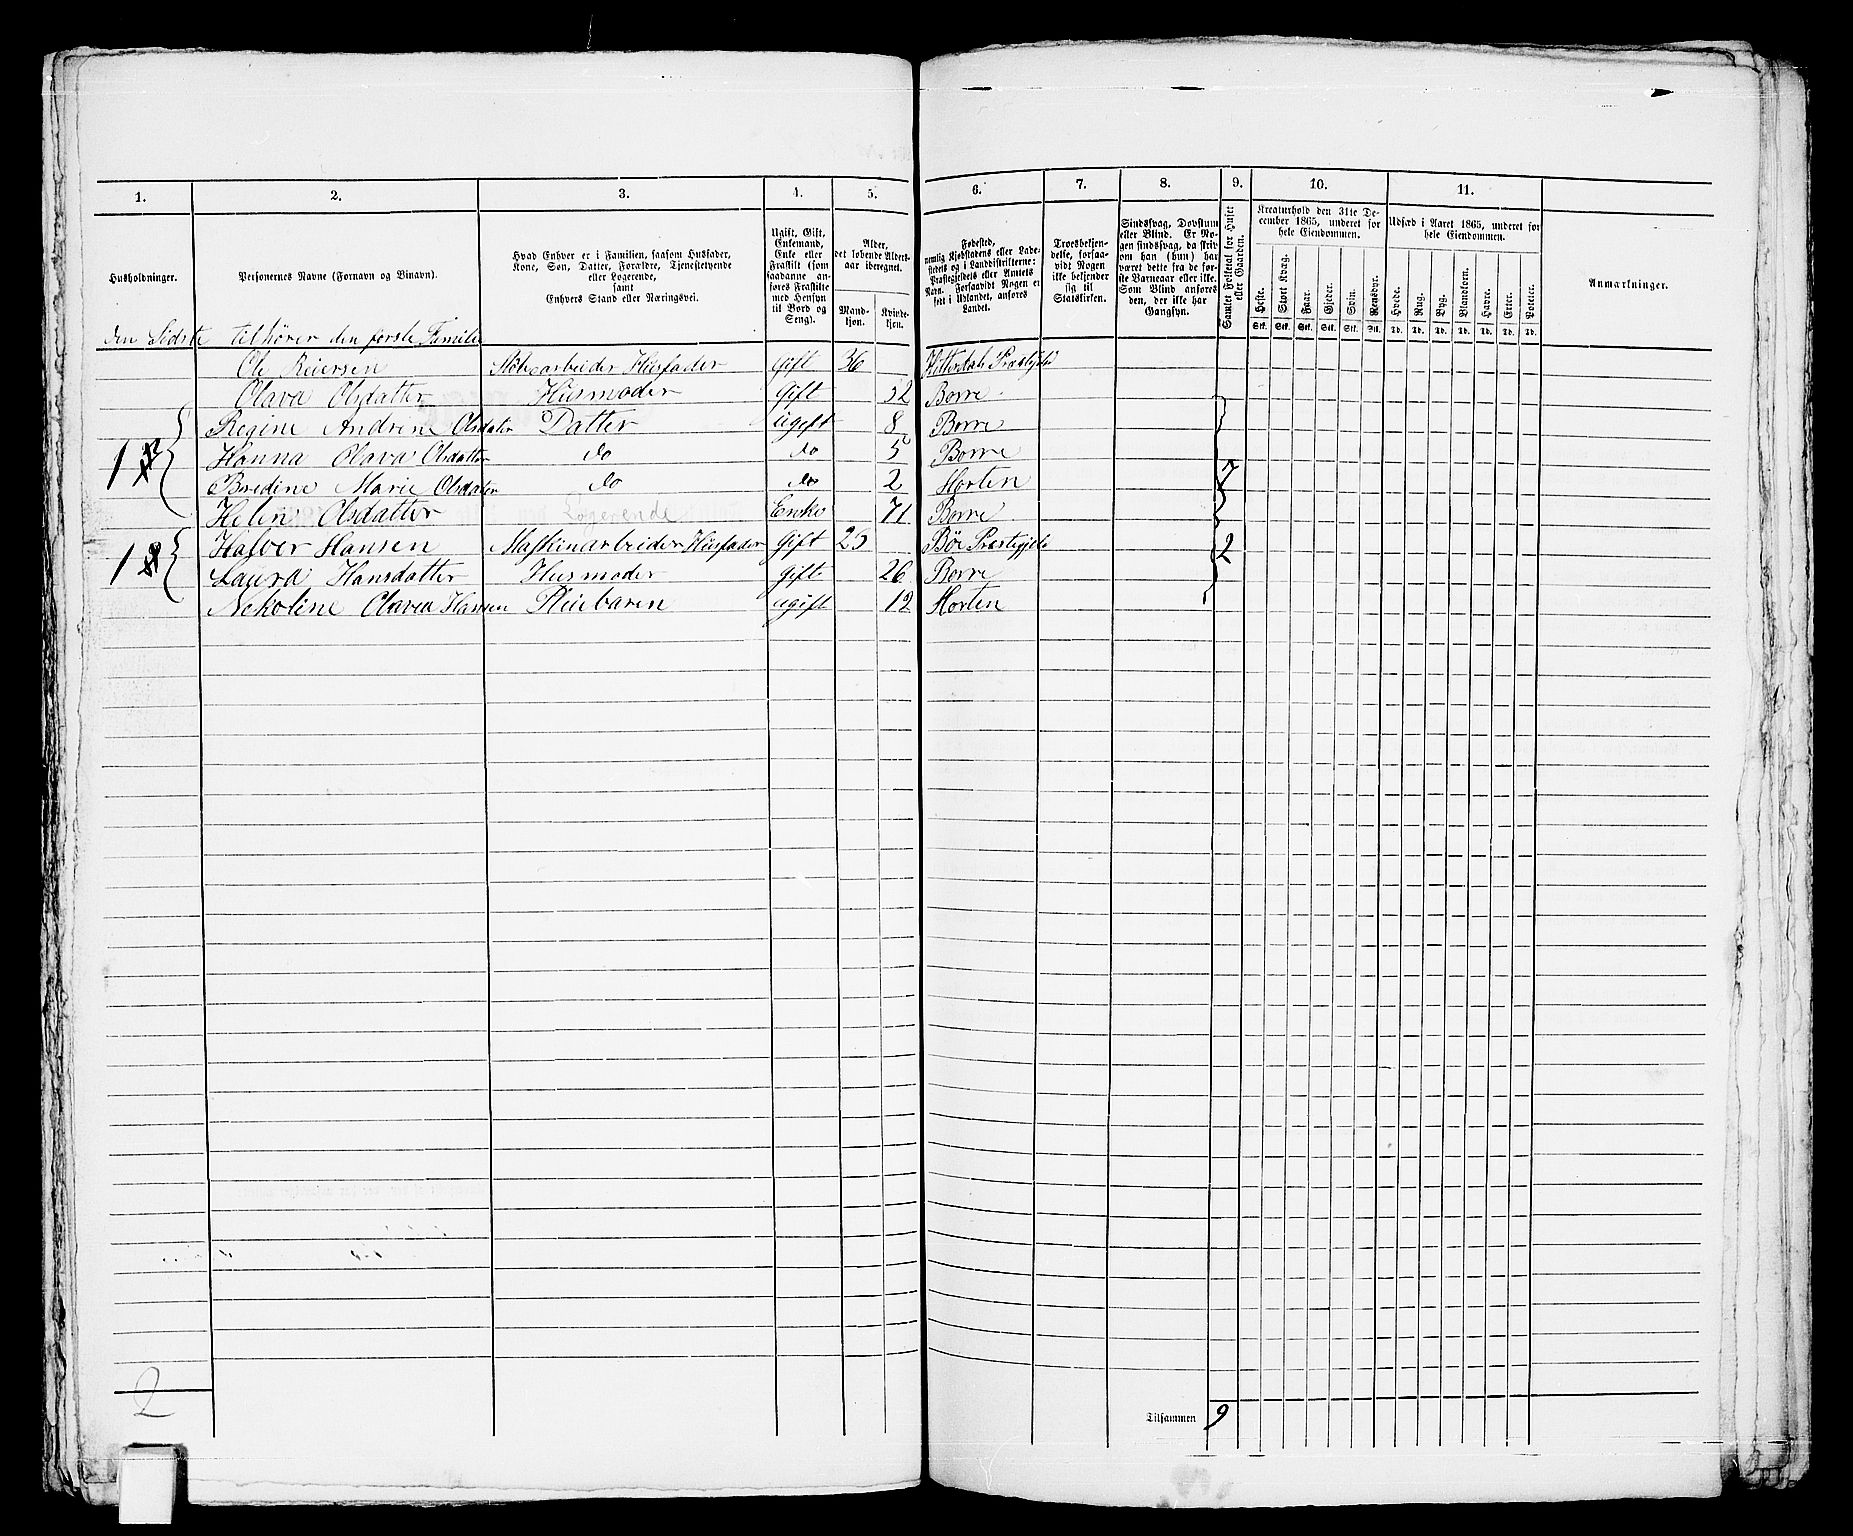 1. 2. 3. 4. 5. 6. 7. 8. 9. 10. 11.
Husholdninger.
Personernes Navne (Fornavn og Binavn).
Hvad Enhver er i Familien, saasom Husfader, Kone, Søn, Datter, Forældre, Tjenestetyende eller Logerende, samt Enhvers Stand eller Næringsvei.
Ugift, Gift, Enkemand, Enke eller Fraskilt (som saadanne anføres Fraskilte med Hensyn til Bord og Seng).
Alder, det løbende Aldersaar iberegnet.
Mandkjøn. Kvindekjøn.
Fødested, nemlig Kjøbstadens eller Ladestedets og i Landdistrikterne: Præstegjeldets eller Amtets Navn. Forsaavidt Nogen er født i Udlandet, anføres Landet.
Troesbekjendelse, forsaavidt Nogen ikke bekjender sig til Statskirken.
Sindssvag, Døvstum eller Blind. Er Nogen sindssvag, da skrives om han (hun) har været dette fra de første Barneaar eller ikke. Som Blind anføres den, der ikke har Gangsyn.
Samlet Folketal for Huset eller Gaarden.
Kreaturhold den 31te December 1865, underet for hele Eiendommen.
Heste. Stort Kvæg. Faar. Gjeder. Svin. Rensdyr.
Stk. Stk. Stk. Stk. Stk. Stk.
Udsæd i Aaret 1865, underet for hele Eiendommen.
Hvede. Rug. Byg. Blandkorn. Havre. Erter. Poteter.
Td. Td. Td. Td. Td. Td. Td.
Anmærkninger.
den Sidste tilhører den første Familie
Ole Reiersen Husfader Gift 36
Olava Olsdatter Husmoder Gift 32 Borre
Regine Andrine Olsdatter Datter ugift 8 Borre
1 Hanna Olava Olsdatter do do 5 Borre
Bredine Marie Olsdatter do do 2 Horten 7
Helene Olsdatter Logerende Enke 71 Borre
Halvor Hansen Maskinarbeider Husfader Gift 25 Bøe Præstegjeld 2
1 Laura Hansdatter Husmoder Gift 26 Borre
Nekoline Olavea Hansen Pleiebaren ugift 12 Horten
2
Tilsammen 9